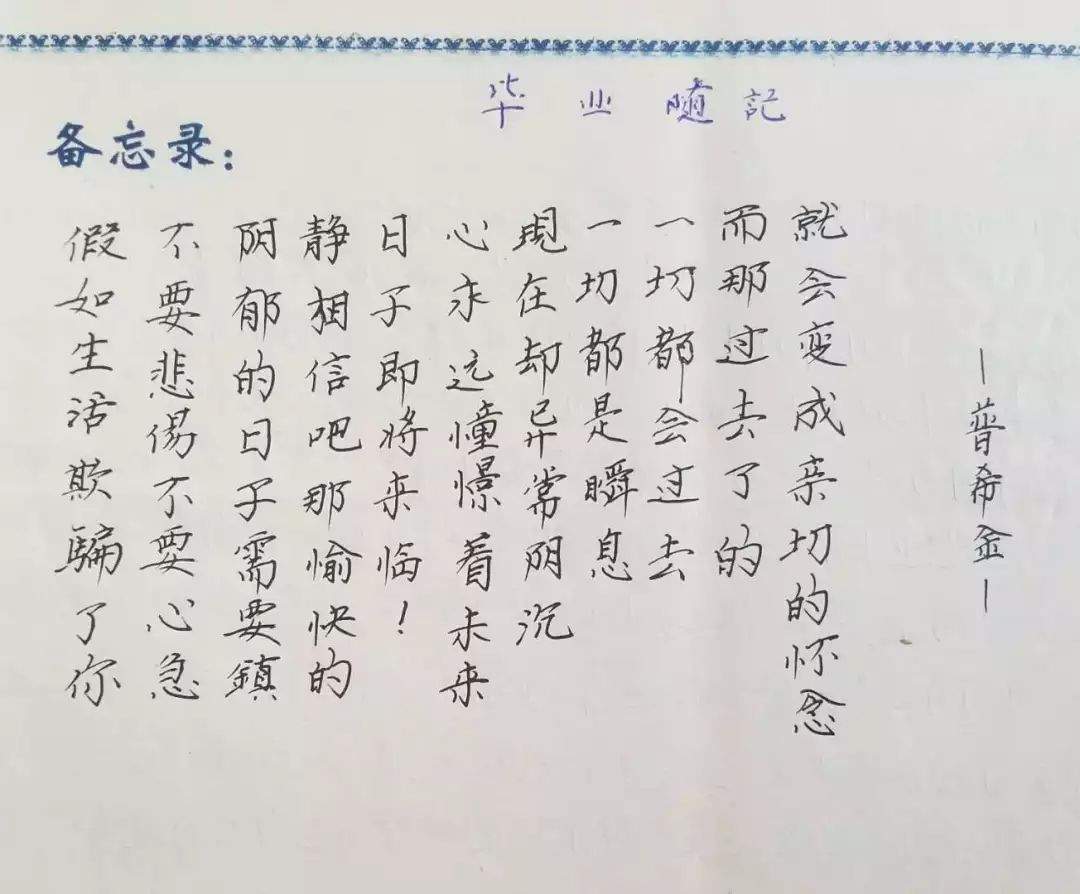 毕业隨記
备忘录：
假如生活欺騙了你
不要悲伤不要心急
阴郁的日子需要鎮
静相信吧那愉快的
日子即将来临！
心永远憧憬着未来
现在却异常阴沉
一切都是瞬息
一切都会过去
而那过去了的
就会变成亲切的怀念
—普希金—